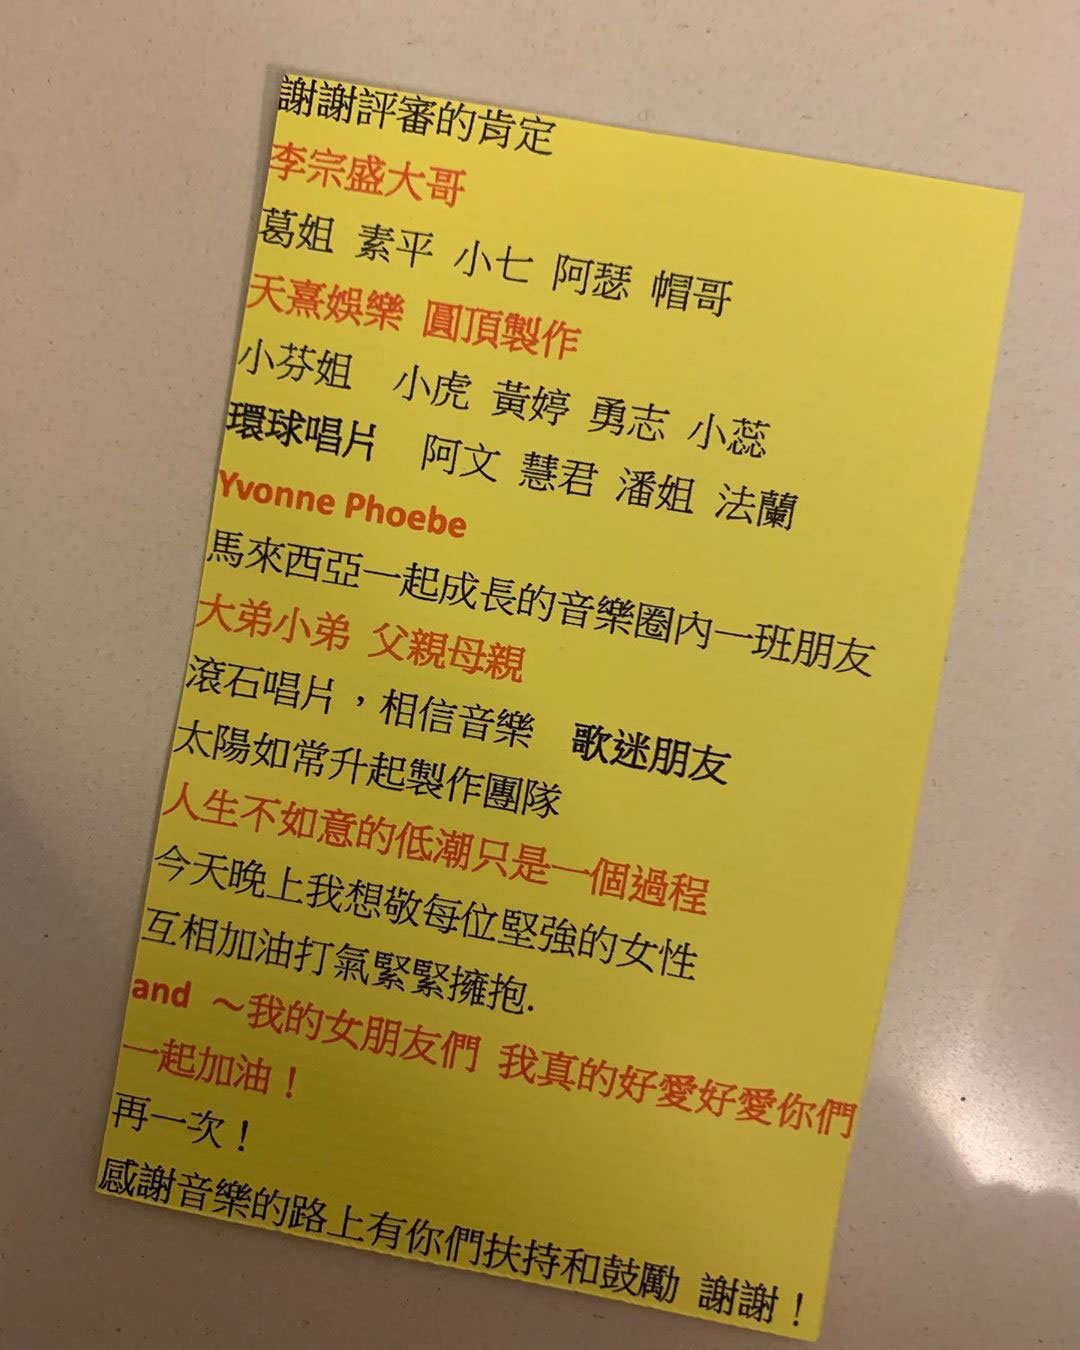 謝謝評審的肯定
李宗盛大哥
葛姐 素平 小七 阿瑟 帽哥
天熹娛樂 圓頂製作
小芬姐 小虎 黃婷 勇志 小蕊
環球唱片 阿文 慧君 潘姐 法蘭
Yvonne Phoebe
馬來西亞一起成長的音樂圈內一班朋友
大弟小弟 父親母親
滾石唱片，相信音樂 歌迷朋友
太陽如常升起製作團隊
人生不如意的低潮只是一個過程
今天晚上我想敬每位堅強的女性
互相加油打氣緊緊擁抱.
and ～我的女朋友們 我真的好愛好愛你們
一起加油！
再一次！
感謝音樂的路上有你們扶持和鼓勵 謝謝！